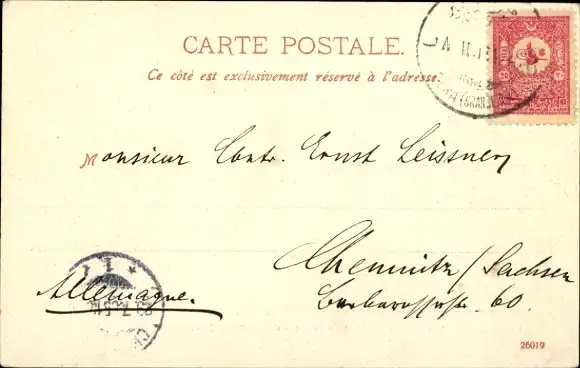 CARTE POSTALE.
Ce côté est exclusivement réservé à l'adresse.
Monsieur Contr. Ernst Leissner
Chemnitz/Sachsen
Allemagne.
Barbarossastr. 60.
26019